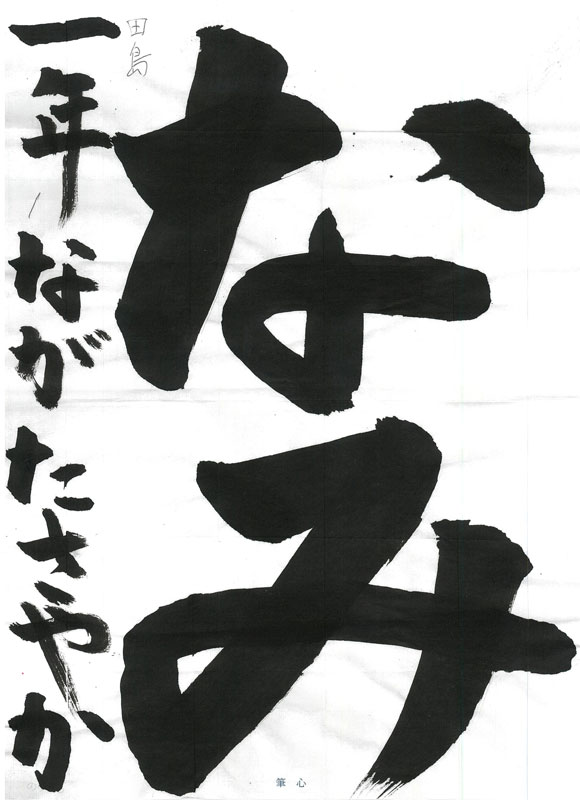 なみ
田島
一年 ながたさやか
筆心